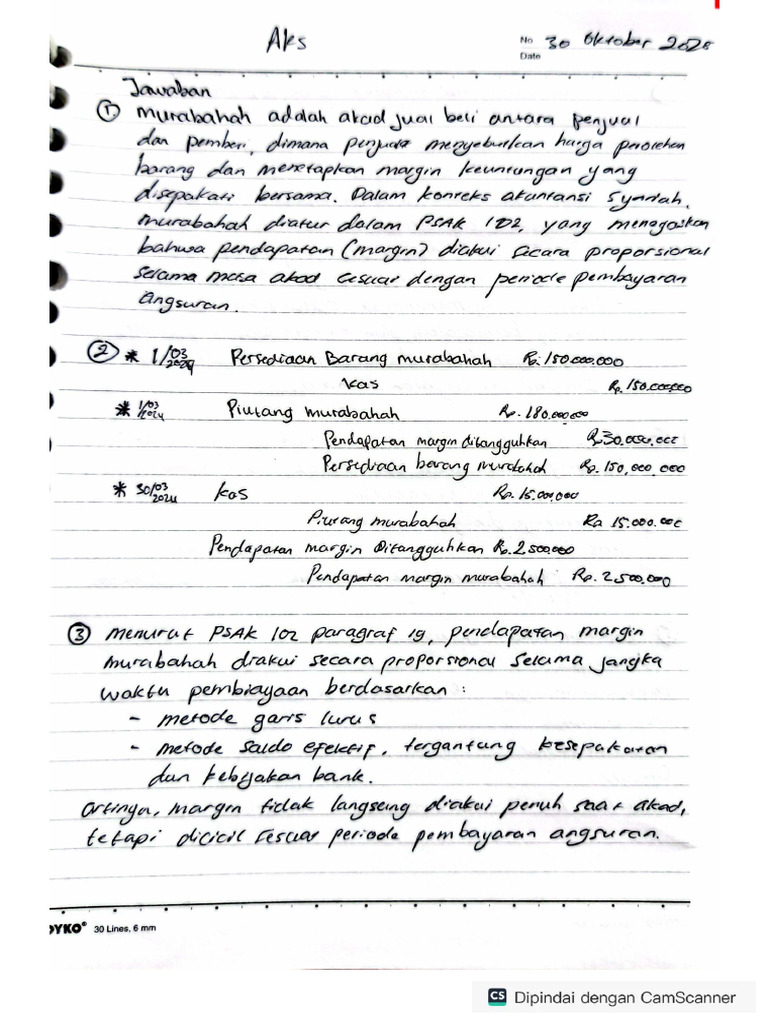 Aks
No 30 Oktober 2025
Date
Jawaban
① murabahah adalah akad jual beli antara penjual
dan pemberi, dimana penjual menyebutkan harga perolehan
barang dan menetapkan margin keuntungan yang
disepakati bersama. Dalam konteks akuntansi Syariah,
murabahah diatur dalam PSAK 102, yang menegaskan
bahwa pendapatan (margin) diakui secara proporsional
selama masa akad sesuai dengan periode pembayaran
angsuran.
② * 1/03 2024 Persediaan Barang murabahah Rp. 150.000.000
kas Rp. 150.000.000
* 1/03 2024 Piutang murabahah Rp. 180.000.000
Pendapatan margin ditangguhkan Rp30.000.000
Persediaan barang murabahah Rp. 150,000,000
* 30/03 2024 kas Rp. 15.000.000
Piutang murabahah Rp 15.000.000
Pendapatan margin Ditangguhkan Rp. 2.500.000
Pendapatan margin murabahah Rp. 2.500.000
③ menurut PSAK 102 paragraf 19, pendapatan margin
murabahah diakui secara proporsional selama jangka
waktu pembiayaan berdasarkan :
- metode garis lurus
- metode saldo efektif, tergantung kesepakatan
dan kebijakan bank.
Artinya, margin tidak langsung diakui penuh saat akad,
tetapi dicicil sesuai periode pembayaran angsuran.
DYKO® 30 Lines, 6 mm
CS Dipindai dengan CamScanner